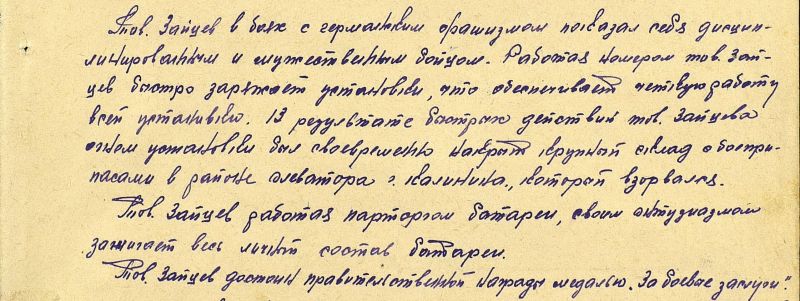 Тов. Зайцев в боях с германским фашизмом показал себя дисцип-
линированным и мужественным бойцом. Работая номером тов. Зай-
цев быстро заряжает установки, что обеспечивает четкую работу
всей установки. В результате быстрых действий тов. Зайцева
огнем установки был своевременно накрыт крупный склад с боепри-
пасами в районе элеватора г. Калинина, который взорвался.
Тов. Зайцев работая парторгом батареи, своим энтузиазмом
зажигает весь личный состав батареи.
Тов. Зайцев достоин правительственной награды медалью „За боевые заслуги".